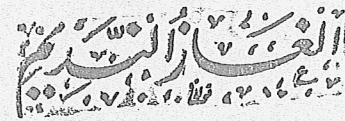 الغاز النديم